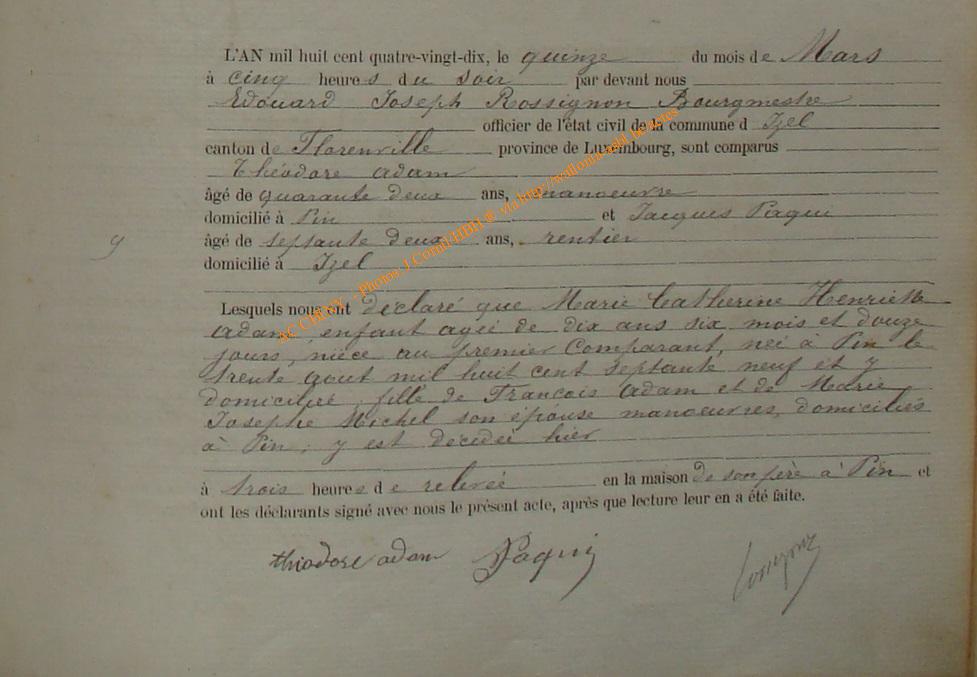 L'AN mil huit cent quatre-vingt-dix, le quinze du mois de Mars
à cinq heures du soir par devant nous
Edouard Joseph Rossignon Bourgmestre
officier de l'état civil de la commune d Izel
canton de Florenville province de Luxembourg, sont comparus
Théodore adam
âgé de quarante deux ans, manoeuvre
domicilié à Pin et Jacques Paqui
y
âgé de septante deux ans, rentier
domicilié à Izel
Lesquels nous ont déclaré que Marie Catherine Henriette
adam, enfant agée de dix ans six mois et douze
jours, nièce au premier Comparant, neé à Pin le
trente aout mil huit cent septante neuf et y
domiciliée, fille de François Adam et de Marie
Josephe Michel son épouse manoeuvres, domiciliés
à Pin, y est décedeé hier
à trois heures de relevée en la maison de son père à Pin et
ont les déclarants signé avec nous le présent acte, après que lecture leur en a été faite.
théodore adam Paqui
AC CHINY - Photos J Cornil/HBH ® via http/wallonia-asbl.be/actes